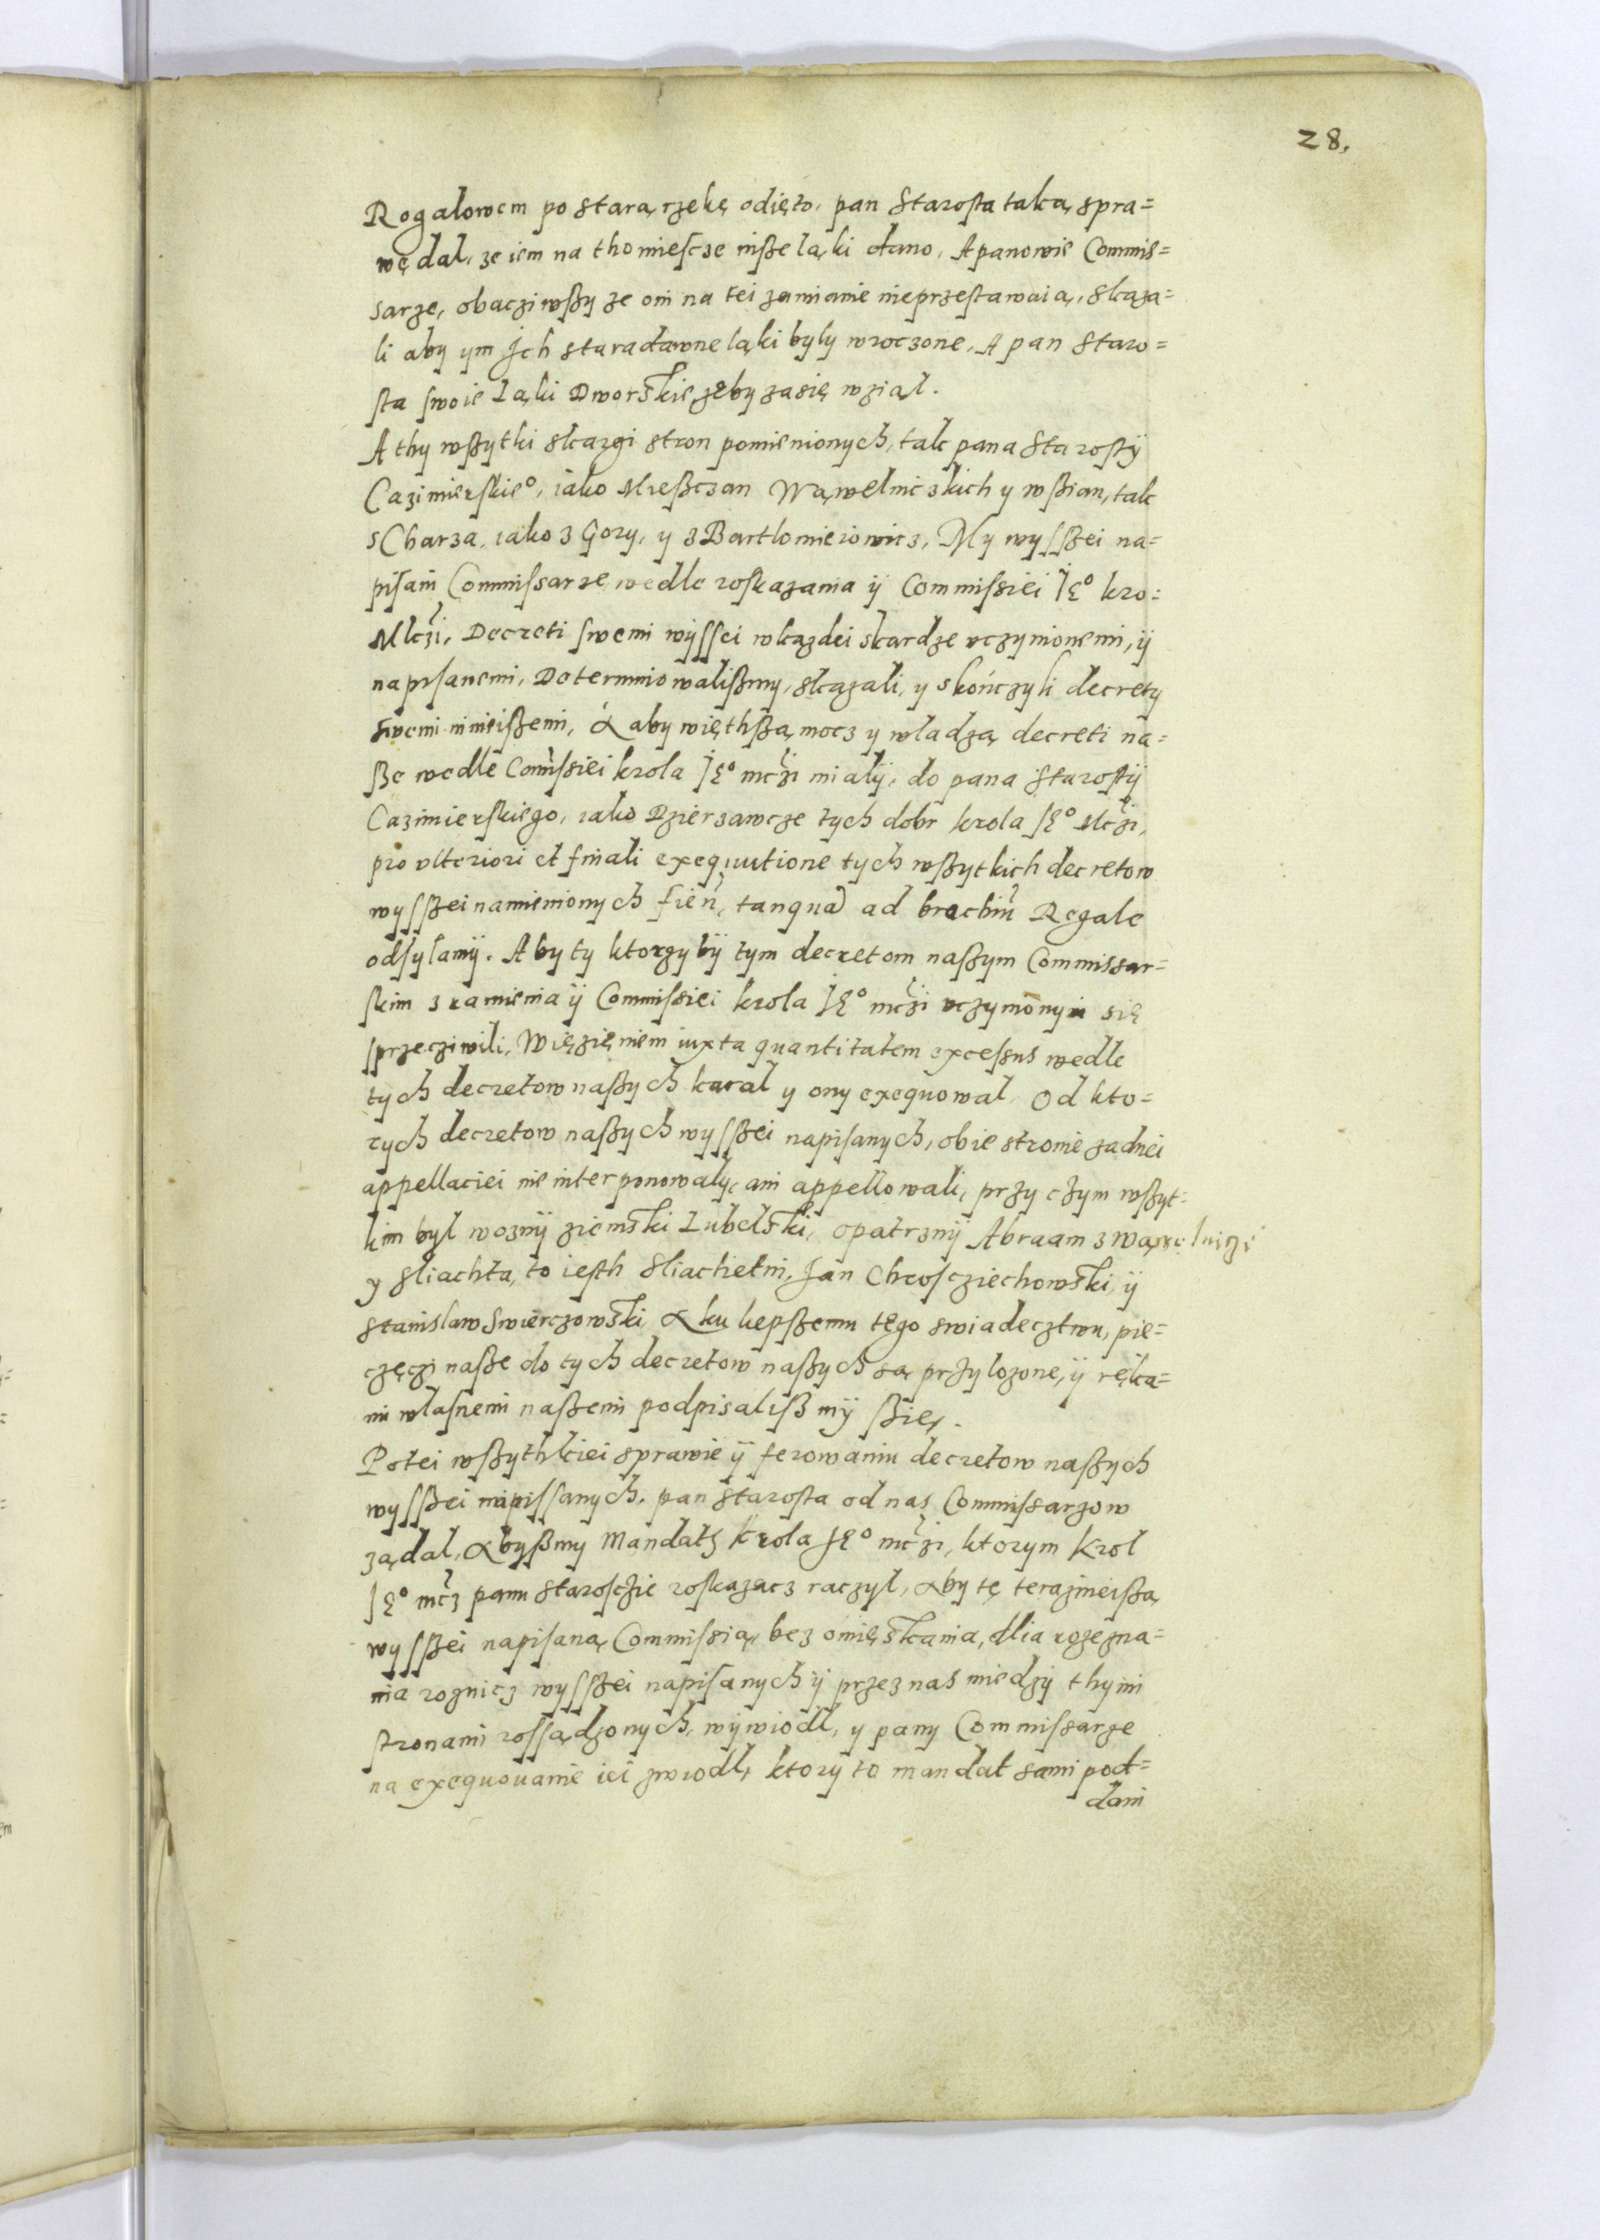 28.
Rogalowem po starą rzekę odięto, pan Starosta taką spra=
wę dal, ze iem na tho miescze insze ląki dano, A panowie Commis=
sarze, obacziwszy ze oni na tei zamianie nieprzestawaią, skaza=
li aby ym Ich staradawne ląki byly wroczone, A pan Staro=
sta swoie Ląki Dworskie zeby zasię wziąl.
A thy wszytki skargi stron pomienionych, tak pana Starosty
Cazimierskieº, iako Mieszczan Wąwelnicskich y wszian, tak
s Charza, iako z Gory, y z Bartlomieiowicz, My wysszei na=
pisani Commissarze wedle roskazania ÿ Commissiei Jęº kro=
Mlczi, Decreti swemi wÿssei w kazdei skardze uczynionemi, ÿ
napisanemi, Determinowaliszmy, skazali, y skończyli decrety
swemi ninieiszemi, A aby więthszą mocz y wladzą decreti na=
sze wedle Comissiei krola Jęº mczi mialÿ, do pana Starostÿ
Cazimierskiego, iako Dziersawcze tych dobr krola Jęº Mczi,
pro ulteriori et finali exequutione tych wszytkich decretow
wysszei namienionych fien, tanqua ad brachiu Regale
odsylamÿ. Aby ty ktorzy bÿ tym decretom naszym Commissar=
skim z ramienia ÿ Commissiei krola Jęº mczi uczynionym się
sprzecziwili, Więzieniem iuxta quantitatem excessus wedle
tych decretow naszych karal y ony exequowal. Od kto=
rych decretow naszych wysszei napisanych, obie stronie zadnei
appellaciei nie interponowaly, ani appellowali, przy czym wszyt=
kim byl woznÿ ziemski Lubelski, opatrznÿ Abraam z Wąwelnizi
y sliachta, to iesth sliachetni, Jan Chrosciechowski, ÿ
Stanislaw Swierczowski, A ku liepszemu tego swiadecztwu, pie=
częczi nasze do tych decretow naszych są przylozone, ÿ ręka=
mi wlasnemi naszemi podpisaliszmÿ szię.
Po tei wszythkiei sprawie ÿ ferowaniu decretow naszych
wysszei napissanych, pan Starosta od nas Commissarzow
ządal, Abyszmy Mandath krola Jęº mczi, ktorym Krol
Jęº mcz panu Starosczie roskazacz raczyl, Aby tę teraznieiszą
wysszei napisaną Commissią, bez omięskania, dlia rozezna=
nia roznicz wysszei napisanych ÿ przez nas miedzÿ thymi
stronami rossądzonych, wÿwiodl, y pany Commissarze
na exequouanie iei zwiodl, ktorÿ to mandat sami pod=
dani